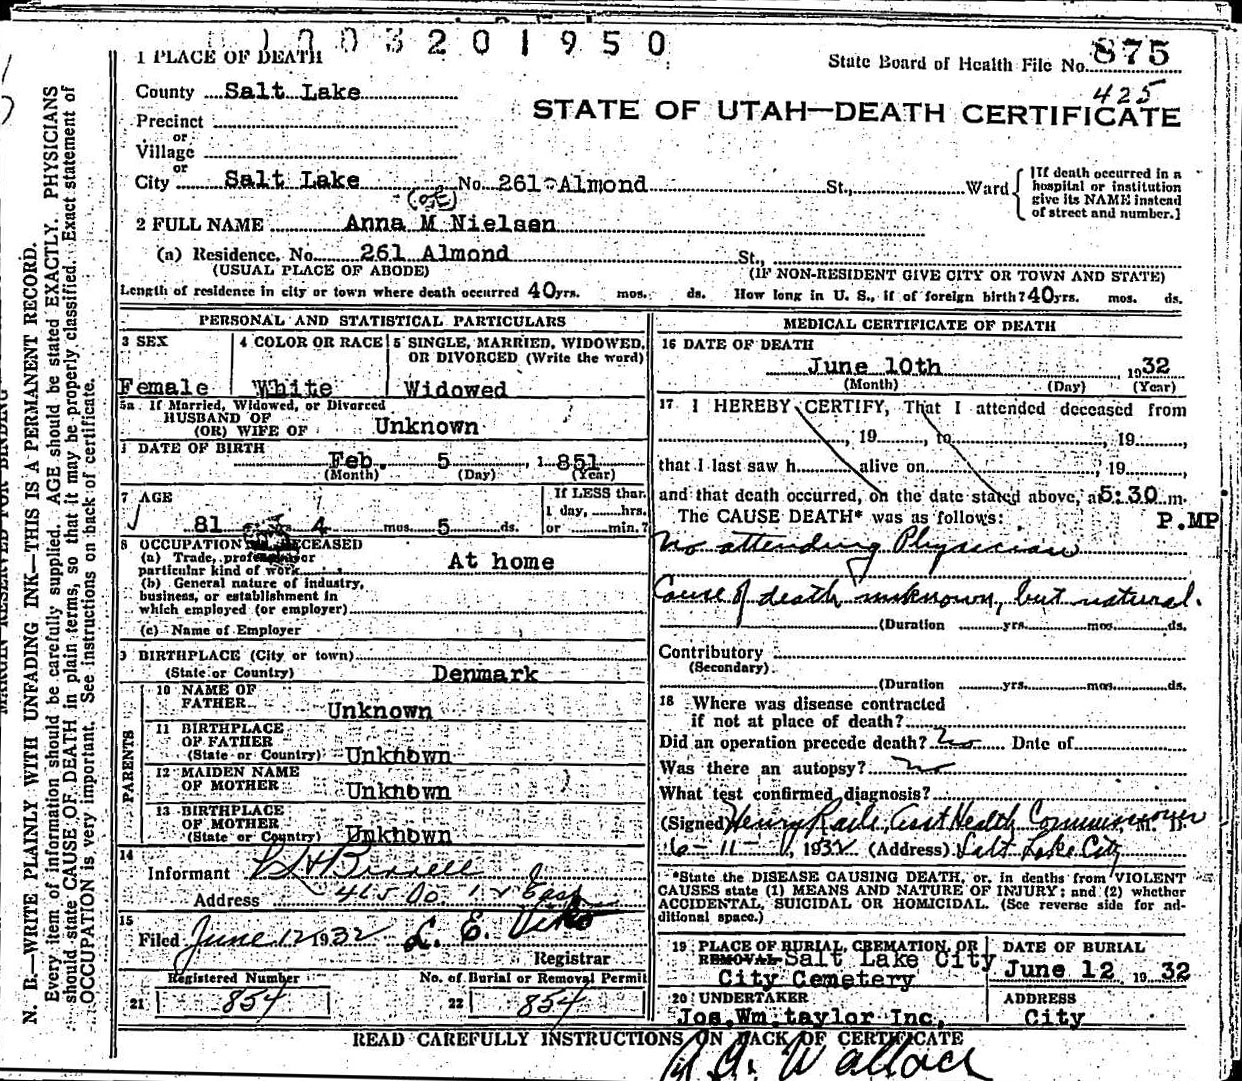 1003201950
1 PLACE OF DEATH
State Board of Health File No. 875
425
County Salt Lake
STATE OF UTAH—DEATH CERTIFICATE
Precinct
or
Village
or
City Salt Lake No. 261 Almond St., Ward
[If death occurred in a hospital or institution give its NAME instead of street and number.]
2 FULL NAME Anna M Nielsen
(a) Residence. No. 261 Almond St.,
(USUAL PLACE OF ABODE) (IF NON-RESIDENT GIVE CITY OR TOWN AND STATE)
Length of residence in city or town where death occurred 40 yrs. mos. ds. How long in U. S., if of foreign birth? 40 yrs. mos. ds.
PERSONAL AND STATISTICAL PARTICULARS
3 SEX
Female
4 COLOR OR RACE
White
5 SINGLE, MARRIED, WIDOWED,
OR DIVORCED (Write the word)
Widowed
5a If Married, Widowed, or Divorced
HUSBAND OF
(OR) WIFE OF Unknown
DATE OF BIRTH
Feb. 5, 1851
(Month) (Day) (Year)
7 AGE
81 4 mos. 5 ds.
If LESS than
1 day, hrs.
or min.?
8 OCCUPATION DECEASED
(a) Trade, profession or
particular kind of work At home
(b) General nature of industry,
business, or establishment in
which employed (or employer)
(c) Name of Employer
9 BIRTHPLACE (City or town)
(State or Country) Denmark
PARENTS
10 NAME OF
FATHER Unknown
11 BIRTHPLACE
OF FATHER
(State or Country) Unknown
12 MAIDEN NAME
OF MOTHER Unknown
13 BIRTHPLACE
OF MOTHER
(State or Country) Unknown
14
Informant
Address 465 So. 12 East
15
Filed June 12 1932 L. E. Viko
Registrar
Registered Number
21 854
No. of Burial or Removal Permit
22 854
MEDICAL CERTIFICATE OF DEATH
16 DATE OF DEATH
June 10th 1932
(Month) (Day) (Year)
17 I HEREBY CERTIFY, That I attended deceased from
, 19 , to , 19 ,
that I last saw h alive on , 19 ,
and that death occurred, on the date stated above, at 5:30 m.
The CAUSE DEATH* was as follows: P.MP
No attending Physician
Cause of death unknown, but natural.
(Duration yrs. mos. ds.
Contributory
(Secondary)
(Duration yrs. mos. ds.
18 Where was disease contracted
if not at place of death?
Did an operation precede death? no Date of
Was there an autopsy? no
What test confirmed diagnosis?
(Signed) Henry Raile, Asst Health Commissioner M. D.
6-11-, 1932 (Address) Salt Lake City
*State the DISEASE CAUSING DEATH, or, in deaths from VIOLENT
CAUSES state (1) MEANS AND NATURE OF INJURY; and (2) whether
ACCIDENTAL, SUICIDAL OR HOMICIDAL. (See reverse side for ad-
ditional space.)
19 PLACE OF BURIAL, CREMATION, OR
REMOVAL Salt Lake City
City Cemetery
DATE OF BURIAL
June 12 1932
20 UNDERTAKER
Jos. Wm. taylor Inc,
ADDRESS
City
READ CAREFULLY INSTRUCTIONS ON BACK OF CERTIFICATE
Wallace
MARGIN RESERVED FOR BINDING
N. B.—WRITE PLAINLY WITH UNFADING INK—THIS IS A PERMANENT RECORD.
Every item of information should be carefully supplied. AGE should be stated EXACTLY. PHYSICIANS
should state CAUSE OF DEATH in plain terms, so that it may be properly classified. Exact statement of
OCCUPATION is very important. See instructions on back of certificate.